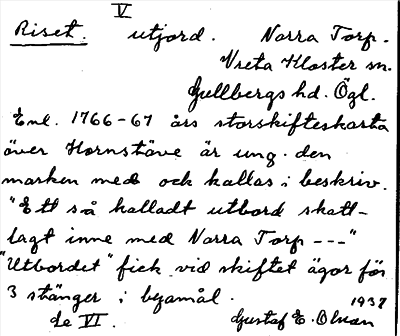 V
Riset. utjord. Norra Torp.
Vreta Kloster sn.
Gullbergs hd. Ögl.
Enl. 1766-67 års storskifteskarta
över Hornstäve är ung. den
marken med och kallas i beskriv.
"Ett så kalladt utbord skatt-
lagt inne med Norra Torp ---"
"Utbordet" fick vid skiftet ägor för
3 stänger i byamål.
1937
se VI. Gustaf E. Olsson